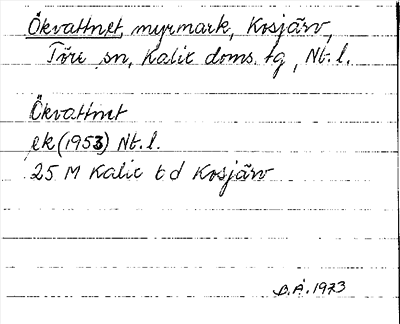 Ökvattnet, myrmark, Kosjärv,
Töre sn, Kalix doms. tg, Nb. l.
Ökvattnet
ek (1953) Nb. l.
25 M Kalix t d Kosjärv
B.Å. 1973